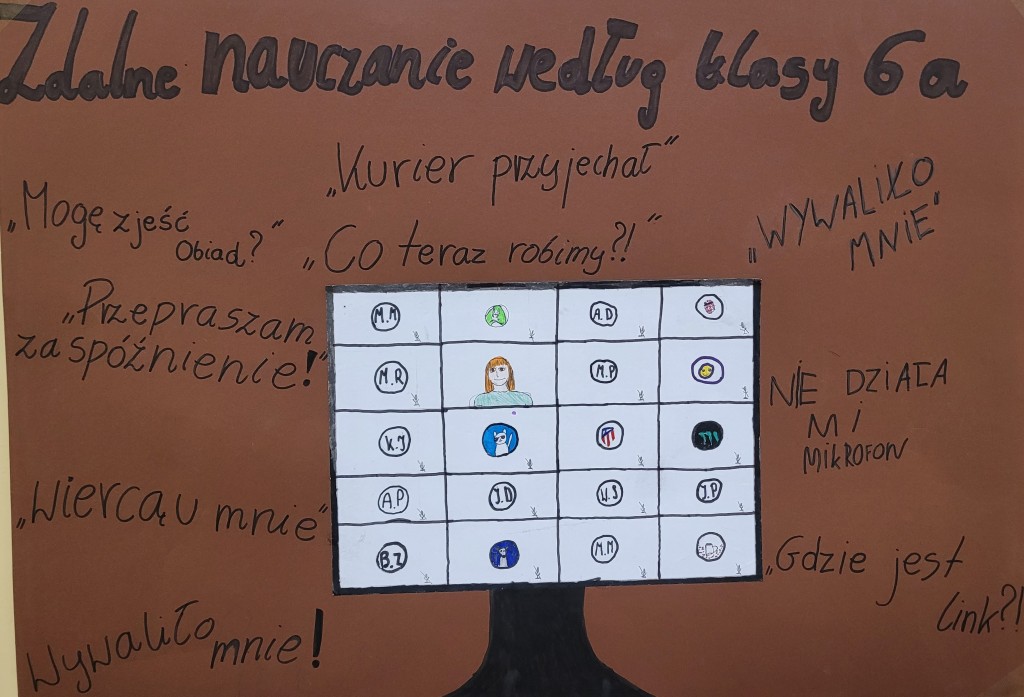 Zdalne nauczanie według klasy 6a
„Kurier przyjechał”
„Mogę zjeść
Obiad?”
„Co teraz robimy?!”
„WYWALIŁO
MNIE”
„Przepraszam
za spóźnienie!”
NIE DZIAŁA
MI
MIKROFON
„Wiercą u mnie”
„Gdzie jest
link?!
Wywaliło
mnie!
M.M
A.D
M.R
M.P
K.J
A.P
J.D
W.S
J.P
B.Z
M.M